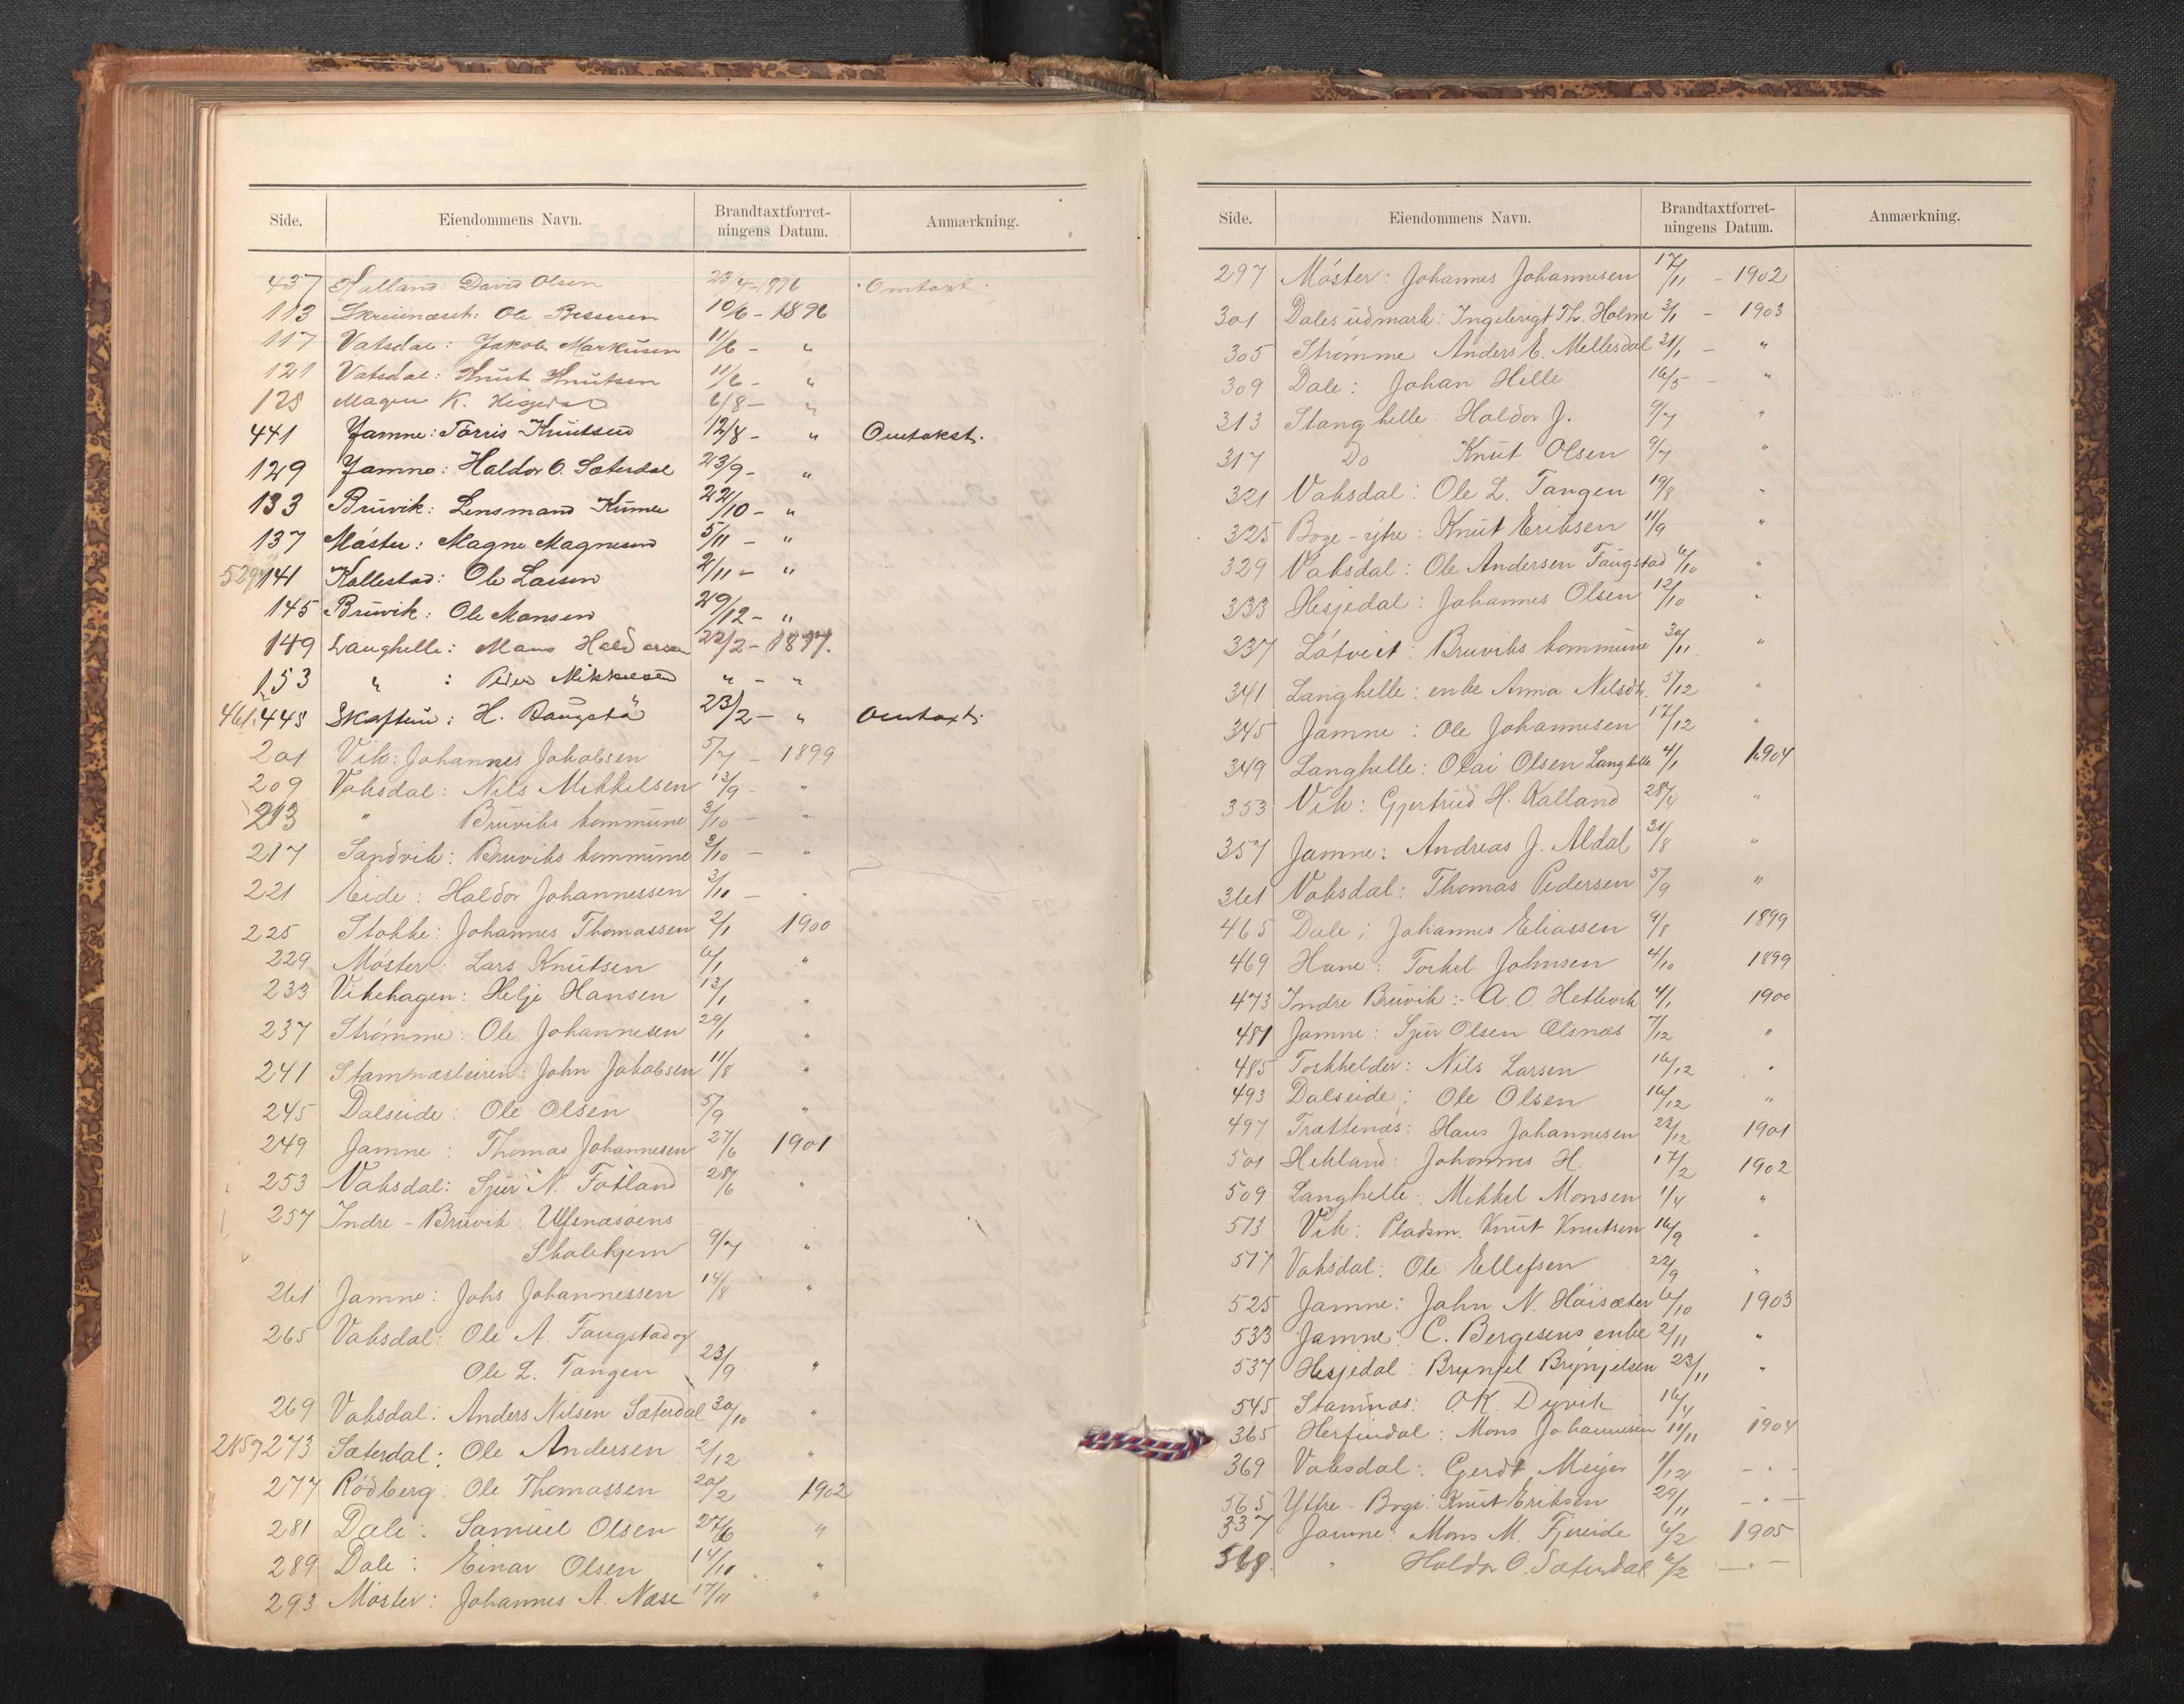 Side. Eiendommens Navn. Brandtaxtforret-
ningens Datum. Anmærkning.
437 Kalland: David Olsen 23/4 - 1896 Omtaxt.
113 Ole Bessesen 10/6 - 1896
117 Vatsdal: Jakob Markusen 11/6 - "
121 Vatsdal: Knut Knutsen 11/6 - "
125 Magne K. Hesjedal 6/8 - "
441 Jamne: Torris Knutsen 12/8 - " Omtakst.
129 Jamne: Haldor O. Sæterdal 23/9 - "
133 Bruvik: Lensmand 22/10 - "
137 Møster: Magne Magnesen 5/11 - "
529 141 Kallestad: Ole Larsen 2/11 - "
145 Bruvik: Ole Monsen 29/12 - "
149 Langhelle: Mons Haldorsen 22/2 - 1897.
153 " : Peder Mikkelsen " - "
461. 445 Skaftun: H. Baugstø 23/2 - " Omtaxt.
201 Vik: Johannes Jakobsen 5/7 - 1899
209 Vaksdal: Nils Mikkelsen 13/9 - "
213 " Bruviks kommune 3/10 - "
217 Sandvik: Bruviks kommune 3/10 - "
221 Eide: Haldor Johannessen 3/10 - "
225 Stokke: Johannes Thomassen 2/1 1900
229 Møster: Lars Knutsen 6/1 "
233 Vikehagen: Helje Hansen 13/1 "
237 Strømme: Ole Johannesen 29/1 "
241 Stamnæsleiren: John Jakobsen 11/8 "
245 Dalseide: Ole Olsen 5/9 "
249 Jamne: Thomas Johannesen 27/6 1901
253 Vaksdal: Sjur N. Fotland 28/6 "
257 Indre - Bruvik: Ulfsnæsøens
Skolehjem 9/7 "
261 Jamne: Johs Johannessen 14/8 "
265 Vaksdal: Ole A. Faugstad og
Ole L. Tangen 23/9 "
269 Vaksdal: Anders Nilsen Sæterdal 30/10 "
285 273 Sæterdal: Ole Andersen 2/12 "
277 Rødberg: Ole Thomassen 20/2 1902
281 Dale: Samuel Olsen 27/6 "
289 Dale: Einar Olsen 14/10 "
293 Møster: Johannes A. Næse 17/11 "
Side. Eiendommens Navn. Brandtaxtforret-
ningens Datum. Anmærkning.
297 Møster: Johannes Johannesen 17/11 - 1902
301 Dales udmark: Ingebrigt Th. Holme 3/1 - 1903
305 Strømme Anders E. Mellesdal 31/1 - "
309 Dale: Johan Hille 16/5 - "
313 Stanghelle: Haldor J. 9/7 "
317 Do Knut Olsen 9/7 "
321 Vaksdal: Ole L. Tangen 19/8 "
325 Boge - ytre: Knut Eriksen 11/9 "
329 Vaksdal: Ole Andersen Faugstad 6/10 "
333 Hesjedal: Johannes Olsen 12/10 "
337 Løtveit: Bruviks kommune 30/11 "
341 Langhelle: enke Anna Nilsdtr. 5/12 "
345 Jamne: Ole Johannesen 17/12 "
349 Langhelle: Olai Olsen Langhelle 4/1 1904
353 Vik: Gjertrud H. Kalland 28/4 "
357 Jamne: Andreas J. Aldal 31/8 "
361 Vaksdal: Thomas Pedersen 5/9 "
465 Dale; Johannes Eliassen 9/8 1899
469 Hane: Torkel Johnsen 4/10 1899
473 Indre Bruvik: A. O. Hetlevik 4/1 1900
481 Jamne: Sjur Olsen Olsnæs 7/12 "
485 Toskhelder: Nils Larsen 16/12 "
493 Dalseide: Ole Olsen 16/12 "
497 Trættenæs: Hans Johannesen 23/12 1901
501 Hekland: Johannes H. 17/2 1902
509 Langhelle: Mikkel Monsen 1/4 "
513 Vik: Pladsm. Knut Knutsen 16/9 "
517 Vaksdal: Ole Ellefsen 22/9 "
525 Jamne: John N. Høisæter 6/10 1903
533 Jamne: C. Bergesens enke 2/11 "
537 Hesjedal: Brynjel Brynjelsen 23/11 "
545 Stamnæs: O. K. Dyvik 16/4 "
365 Herfindal: Mons Johannesen 11/11 1904
369 Vaksdal: Gerdt Meyer 1/12 - " -
565 Yttre - Boge: Knut Eriksen 29/11 - " -
337 Jamne: Mons M. Fjereide 6/2 1905
569. " Haldor O. Sæterdal 6/2 - " -